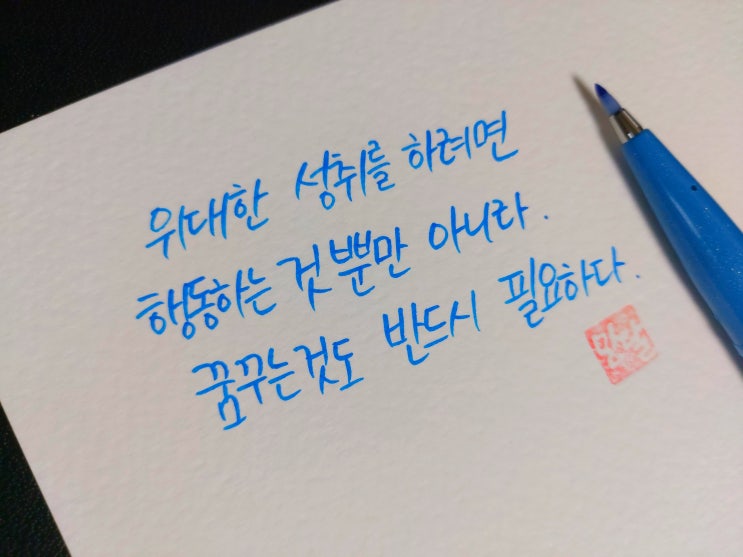 위대한 성취를 하려면
행동하는 것 뿐만 아니라.
꿈꾸는것도 반드시 필요하다.